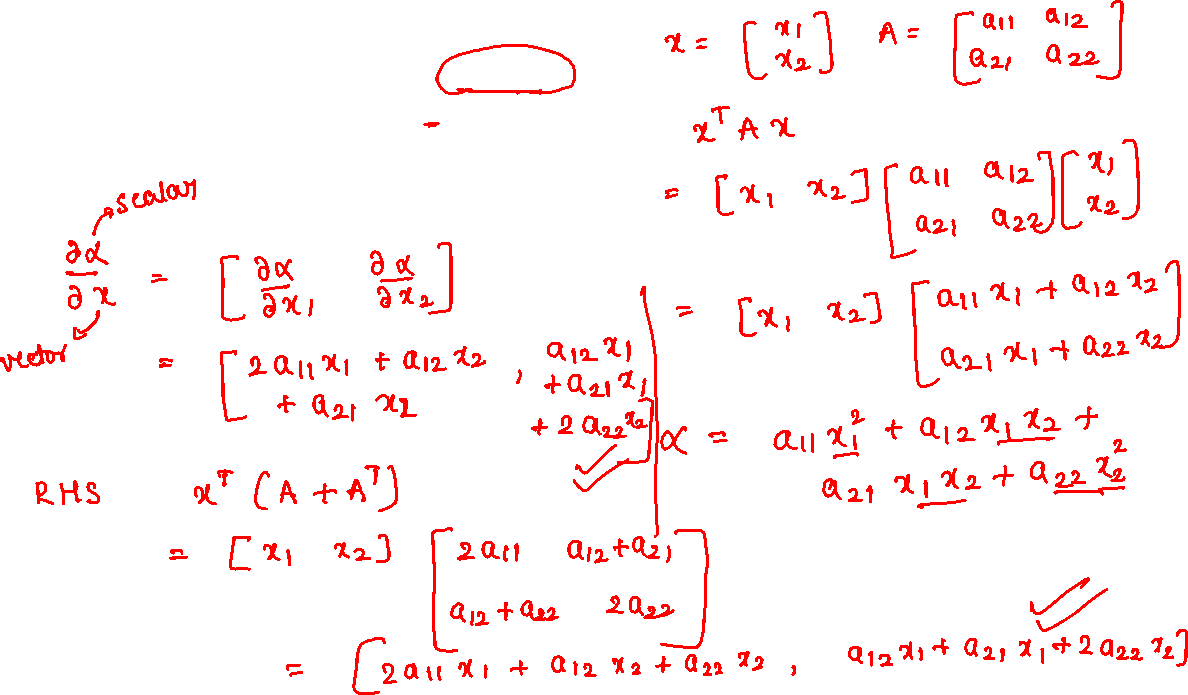 x = [x1 x2] A = [a11 a12 a21 a22]
x^T A x
= [x1 x2] [a11 a12 a21 a22] [x1 x2]
= [x1 x2] [a11 x1 + a12 x2 a21 x1 + a22 x2]
α = a11 x1^2 + a12 x1 x2 +
a21 x1 x2 + a22 x2^2
scalar
∂α/∂x = [∂α/∂x1 ∂α/∂x2]
vector
= [2a11 x1 + a12 x2 + a21 x2 , a12 x1 + a21 x1 + 2a22 x2]
RHS x^T (A + A^T)
= [x1 x2] [2a11 a12+a21 a12+a22 2a22]
= [2a11 x1 + a12 x2 + a22 x2 , a12 x1 + a21 x1 + 2a22 x2]